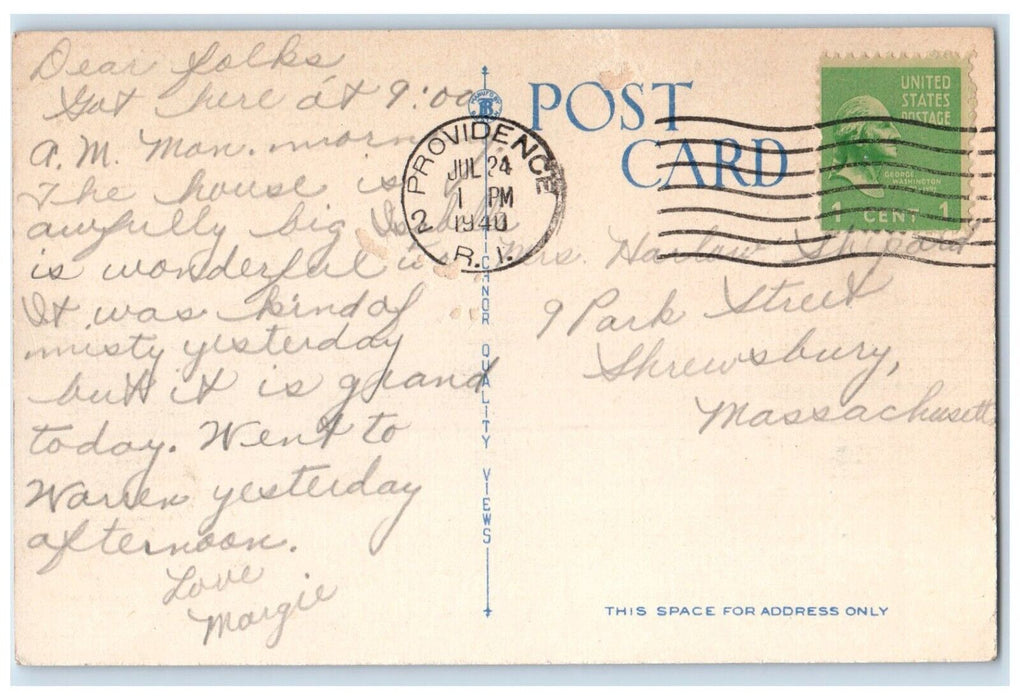 Dear folks
Got here at 9:00
A.M. Mon. morn
The house is
awfully big
is wonderful
It was kind of
misty yesterday
but it is grand
today. Went to
Warren yesterday
afternoon.
Love
Margie
POST
CARD
PROVIDENCE
2
JUL 24
1 PM
1940
R.I.
UNITED
STATES
POSTAGE
GEORGE
WASHINGTON
1 CENT 1
Mrs. Harlow Shepard
9 Park Street
Shrewsbury,
Massachusetts
QUALITY VIEWS
THIS SPACE FOR ADDRESS ONLY